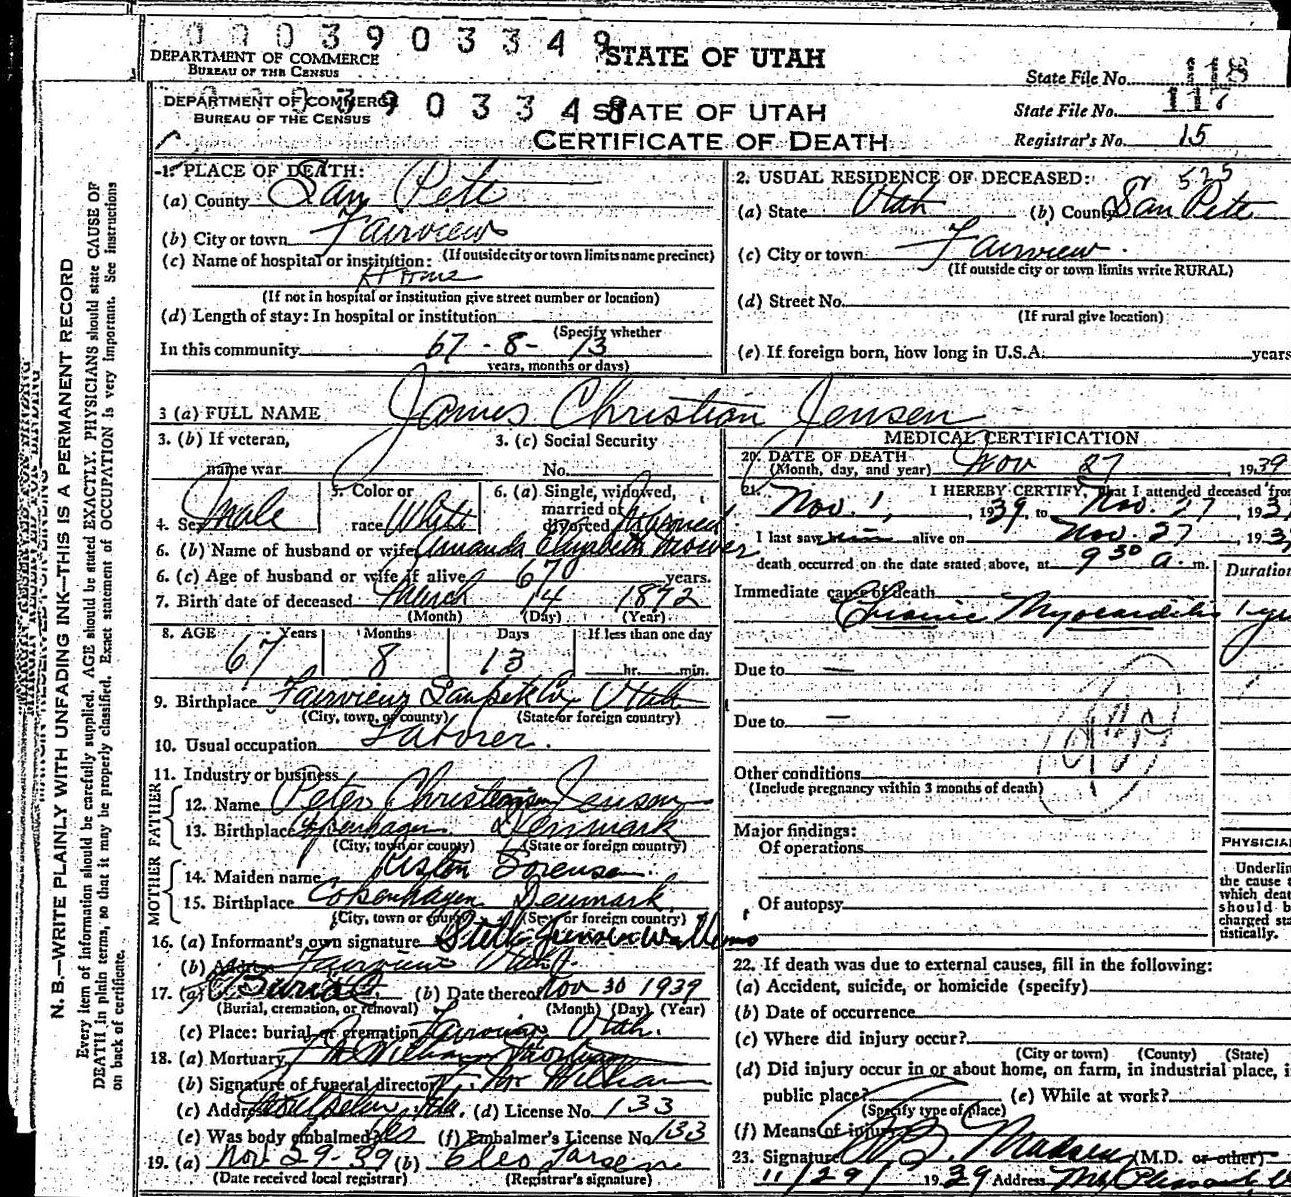 0003903349 STATE OF UTAH
DEPARTMENT OF COMMERCE
BUREAU OF THE CENSUS
State File No. 118
DEPARTMENT OF COMMERCE 03903348 STATE OF UTAH
BUREAU OF THE CENSUS
State File No. 117
CERTIFICATE OF DEATH
Registrar's No. 15
1. PLACE OF DEATH:
(a) County San Pete
(b) City or town Fairview
(If outside city or town limits name precinct)
(c) Name of hospital or institution:
Home
(If not in hospital or institution give street number or location)
(d) Length of stay: In hospital or institution
(Specify whether
In this community 67-8-13
years, months or days)
2. USUAL RESIDENCE OF DECEASED: 525
(a) State Utah (b) County San Pete
(c) City or town Fairview
(If outside city or town limits write RURAL)
(d) Street No.
(If rural give location)
(e) If foreign born, how long in U.S.A. years
3 (a) FULL NAME James Christian Jensen
3. (b) If veteran, 3. (c) Social Security
name war No.
4. Sex Male 5. Color or race White 6. (a) Single, widowed, married or divorced Married
6. (b) Name of husband or wife Amanda Elizabeth Mower
6. (c) Age of husband or wife if alive 67 years.
7. Birth date of deceased March 14 1872
(Month) (Day) (Year)
8. AGE Years Months Days If less than one day
67 8 13 hr. min.
9. Birthplace Fairview Sanpete Co Utah
(City, town, or county) (State or foreign country)
10. Usual occupation Laborer.
11. Industry or business
FATHER
12. Name Peter Christian Jensen
13. Birthplace Copenhagen Denmark
(City, town or county) (State or foreign country)
MOTHER
14. Maiden name Kisten Sorensen
15. Birthplace Copenhagen Denmark
(City, town or county) (State or foreign country)
16. (a) Informant's own signature Stella Jensen
(b) Address Fairview Utah
17. (a) Burial (b) Date thereof Nov 30 1939
(Burial, cremation, or removal) (Month) (Day) (Year)
(c) Place: burial or cremation Fairview Utah.
18. (a) Mortuary
(b) Signature of funeral director
(c) Address (d) License No. 133
(e) Was body embalmed? yes (f) Embalmer's License No. 133
19. (a) Nov. 29-39 (b) Cleo Larsen
(Date received local registrar) (Registrar's signature)
MEDICAL CERTIFICATION
20. DATE OF DEATH
(Month, day, and year) Nov 27, 1939
21. I HEREBY CERTIFY, That I attended deceased from
Nov. 1, 1939, to Nov. 27 193
I last saw him alive on Nov. 27 193
death occurred on the date stated above, at 9 30 a. m.
Duration
Immediate cause of death
Chronic Myocarditis 1 yr
Due to —
Due to —
Other conditions
(Include pregnancy within 3 months of death)
Major findings:
Of operations
Of autopsy
PHYSICIA
Underlin
the cause
which deat
should b
charged sta
tistically.
22. If death was due to external causes, fill in the following:
(a) Accident, suicide, or homicide (specify)
(b) Date of occurrence
(c) Where did injury occur?
(City or town) (County) (State)
(d) Did injury occur in or about home, on farm, in industrial place, i
public place? (e) While at work?
(Specify type of place)
(f) Means of injury
23. Signature Madsen (M.D. or other)
11/29/ 1939 Address Mt Pleasant
N. B.—WRITE PLAINLY WITH UNFADING INK—THIS IS A PERMANENT RECORD
Every item of information should be carefully supplied. AGE should be stated EXACTLY. PHYSICIANS should state CAUSE OF
DEATH in plain terms, so that it may be properly classified. Exact statement of OCCUPATION is very important. See instructions
on back of certificate.